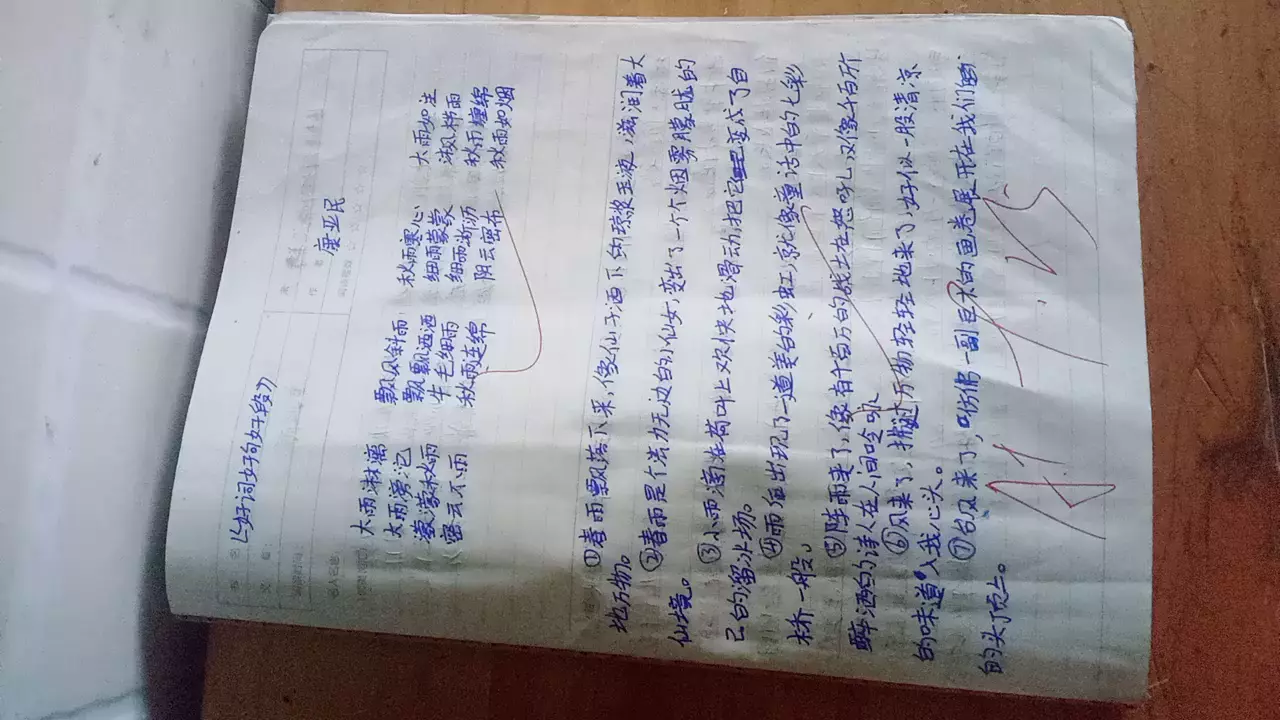 《好词好句好段》
唐亚民
大雨淋漓 飘风斜雨 秋雨寒心 大雨如注
大雨滂沱 飘飘洒洒 细雨蒙蒙 淑风梯雨
蒙蒙水雨 牛毛细雨 细雨淅沥 秋雨缠绵
密云不雨 秋雨连绵 阴云密布 秋雨如烟
①春雨飘落下来，像仙子洒下的琼浆玉液，滋润着大
地万物。
②春雨是个法力无边的小仙女，变出了一个个烟雾朦胧的
仙境。
③小雨滴在荷叶上欢快地滑动，把它变成了自
己的溜冰场。
④雨后出现了一道美的彩虹，就像童话中的七彩
桥一般。
⑤阵雨来了，像有千百万的战士在怒吼，又像千百所
醉洒的诗人在人间吟咏
⑥风来了，拂过万物轻轻地来了，好似一股清凉
的味道入我心头。
⑦台风来了，仿佛一副巨木的画卷展开在我们
的头顶上。